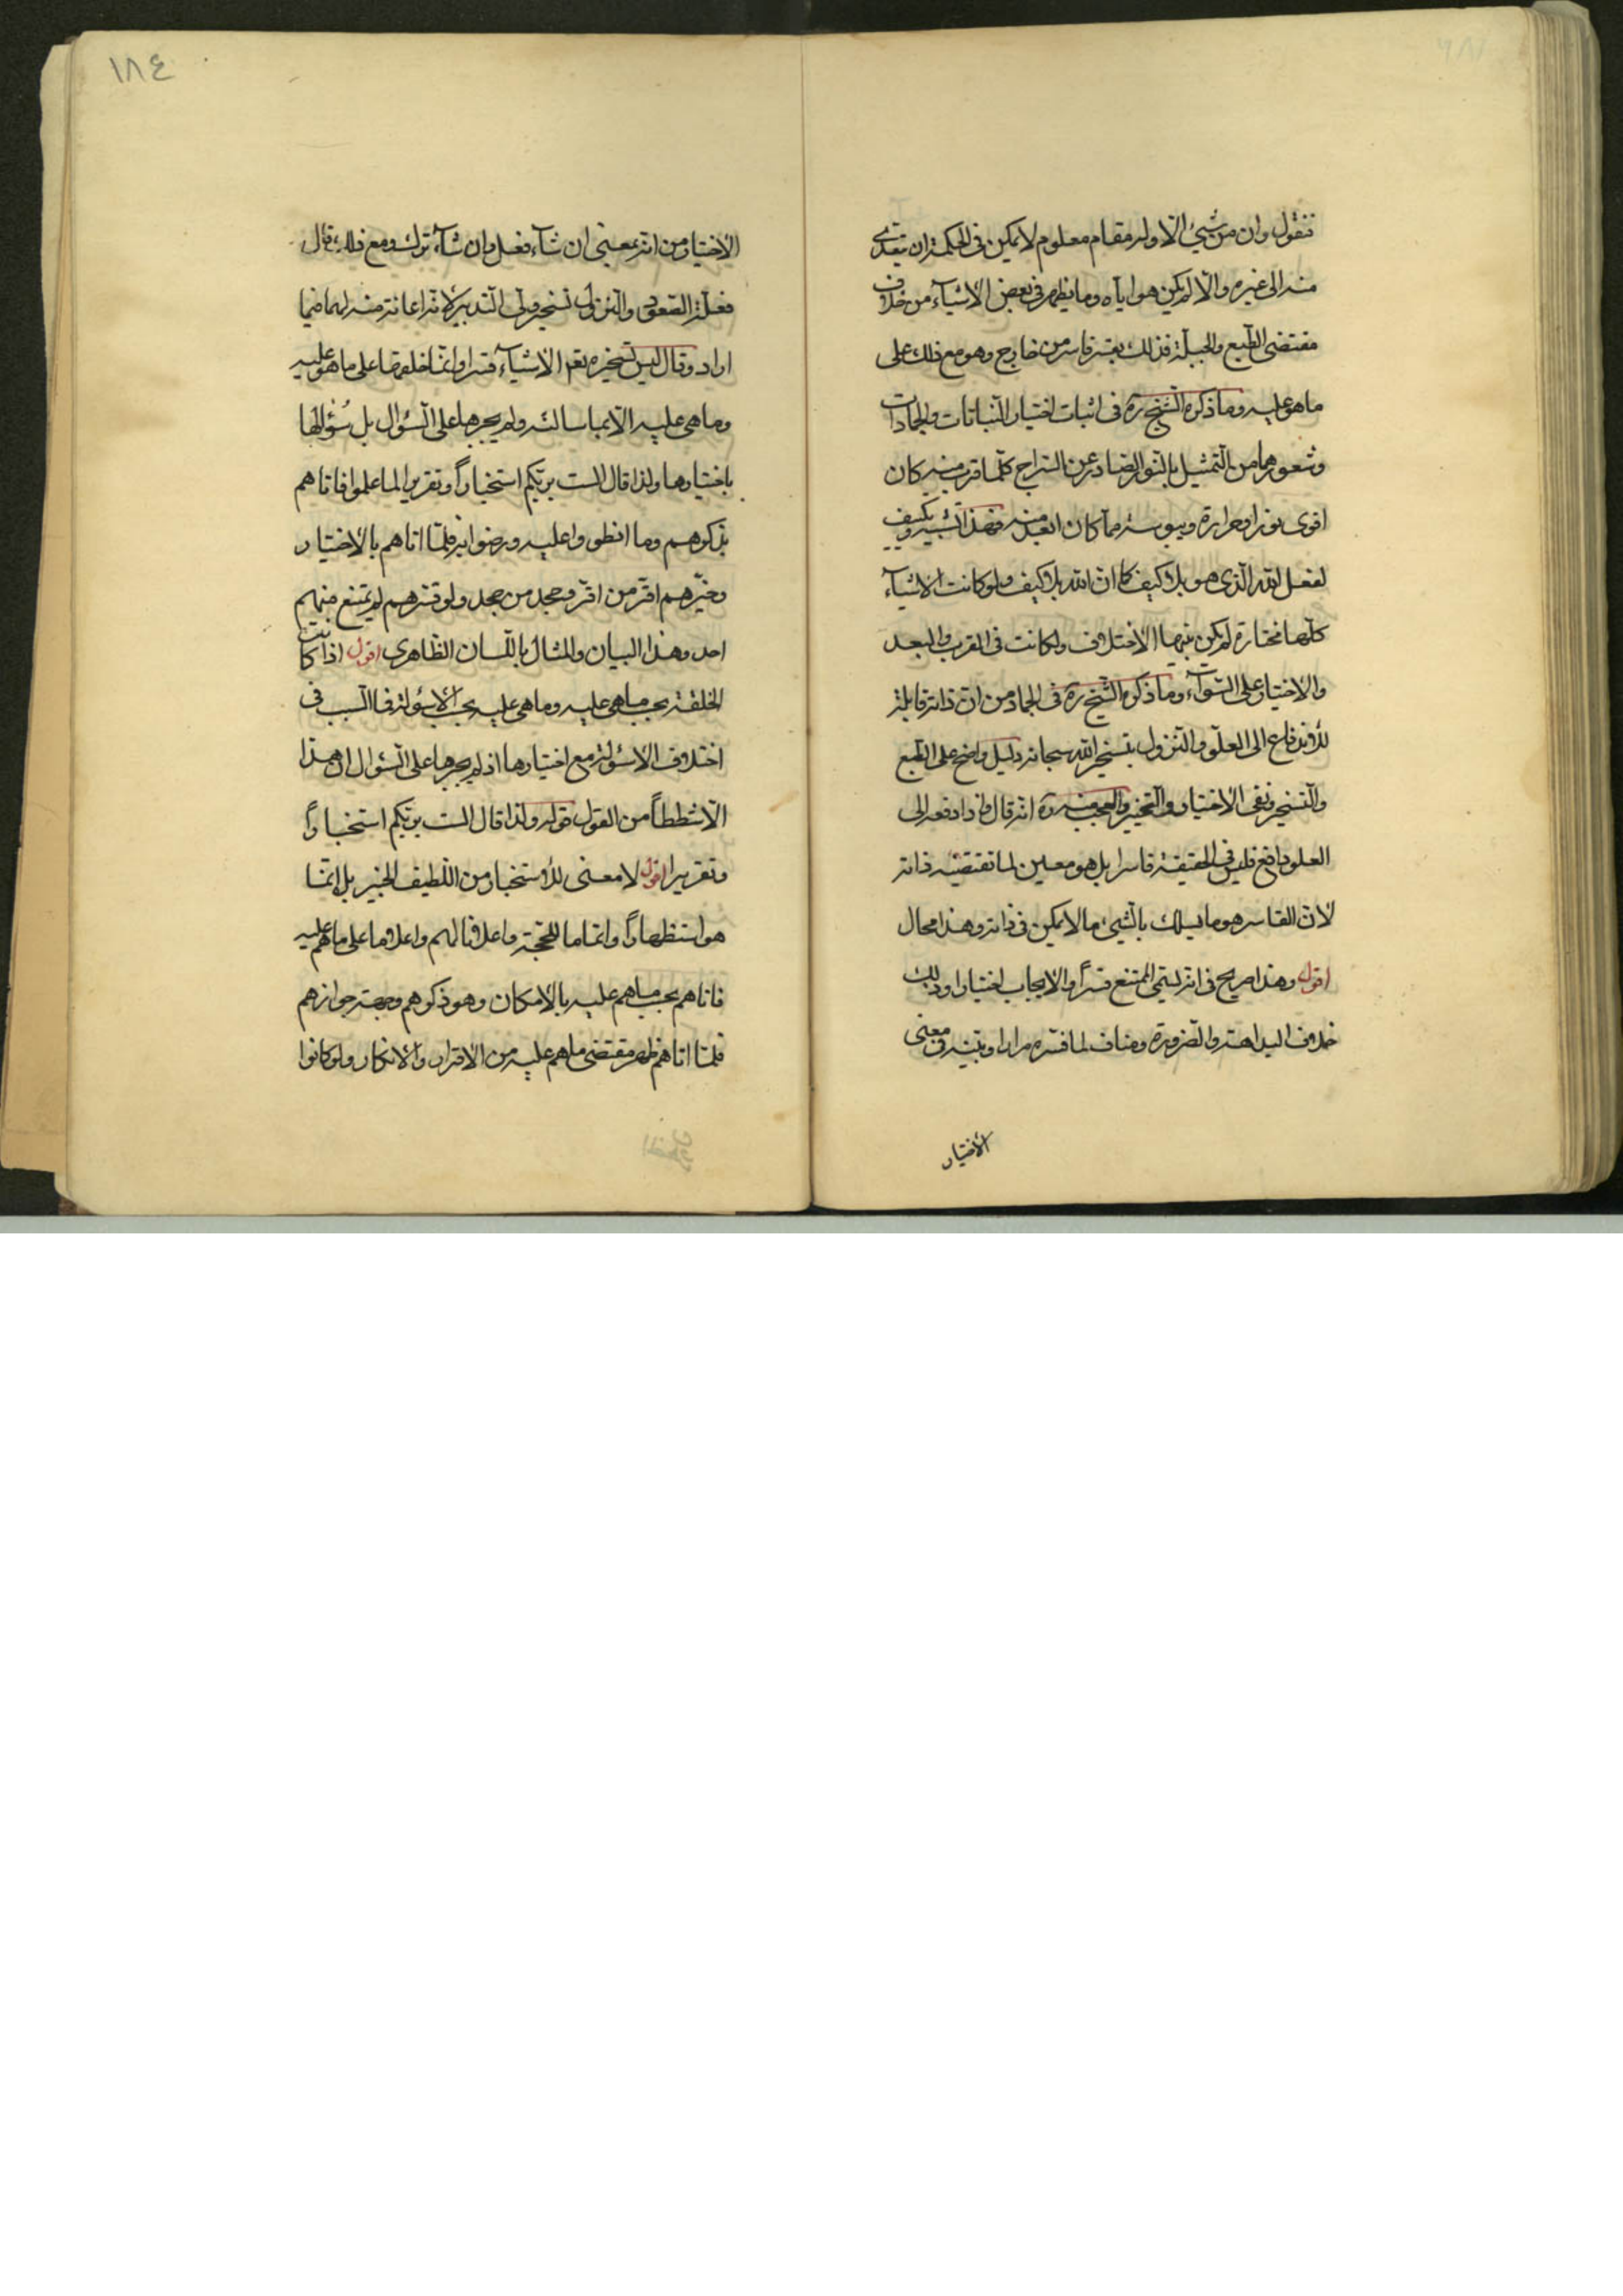 فنقول وان من شيئ الّا وله مقام معلوم لا يمكن فى الحكمة ان يتعدّى
منه الى غيره والّا لم يكن هو ايّاه وما يظهر فى بعض الاشيآء من خلاف
مقتضى الطّبع والجبلّة فذلك بقسر قاسر من خارج وهو مع ذلك على
ما هو عليه وما ذكره الشّيخ ره فى اثبات اختيار النّباتات والجمادات
وشعورها من التّمثيل بالنّور الصّادر عن السّراج كلّما قرب منه كان
اقوى نورا وحرارة ويبوسة ممّا كان ابعد منه فهذا تشبيه وتكييف
لفعل الله الّذى هو بلا كيف كما انّ الله بلا كيف ولو كانت الاشيآء
كلّها مختارة لم يكن بينها الاختلاف ولكانت فى القرب والبعد
والاختيار على السّوآء وما ذكره الشّيخ ره فى الجماد من انّ ذاته قابلة
للاندفاع الى العلوّ والنّزول بتسخير الله سبحانه دليل واضح على الطّبع
والتّسخير ونفى الاختيار والتّخيير والعجب منه ره انّه قال واذا دفعه الى
العلو دافع فليس فى الحقيقة قاسرا بل هو معين لما تقتضيه ذاته
لانّ القاسر هو ما يسلك بالشّيئ ما لا يمكن فى ذاته وهذا محال
اقول وهذا صريح فى انّه يسمّى الممتنع قسراً والايجاب اختيارا وذلك
خلاف البداهة والضّرورة ومناف لما فسّره مرارا وبيّنه فى معنى
الاختيار
١٨٤
الاختيار من انّه بمعنى ان شآء فعل وان شآء ترك ومع ذلك قال
فعلّة الصّعود والنّزول تسخير ولىّ التّدبير لانّه اعانة منه لهما فيما
اراد وقال ليس تسخيره تعم الاشيآء قسرا وانّما خلقها على ما هو عليه
وما هى عليه الّا بما سالته ولم يجبرها على السّؤال بل سُؤالها
باختيارها ولذا قال الست بربّكم استخباراً وتقريرا لما علموا فاتاهم
بذكرهم وما انطووا عليه ورضوا به فلمّا اتاهم بالاختيار
وخيّرهم اقرّ من اقرّ وجحد من جحد ولو قسرهم لم يمتنع منهم
احد وهذا البيان والمثال باللّسان الظّاهرى اقول اذا كانت
الخلقة بحسب ما هى عليه وما هى عليه بحسب الاسؤلة فما السّبب فى
اختلاف الاسؤلة مع اختيارها اذ لم يجبرها على السّؤال ان هذا
الّا شططاً من القول قوله ولذا قال الست بربّكم استخباراً
وتقريرا اقول لا معنى للاستخبار من اللّطيف الخبير بل انّما
هو استظهاراً واتماما للحجّة واعلانا لهم واعلاما على ما هم عليه
فاتاهم بحسب ما هم عليه بالامكان وهو ذكرهم وجهة جوازهم
فلمّا اتاهم ظهر مقتضى ما هم عليه من الاقرار والانكار ولو كانوا